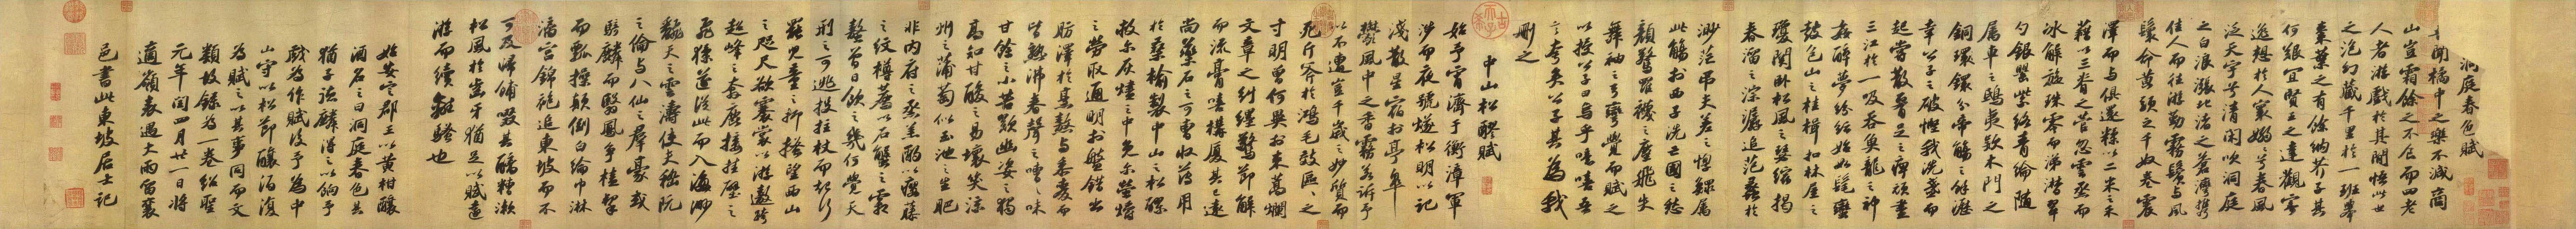 洞庭春色賦
吾聞橘中之樂不減商
山豈霜餘之不食而四老
人者游戲於其間悟此世
之泡幻藏千里於一班舉
棗葉之有餘納芥子其
何艱宜賢王之達觀寄
逸想於人寰嫋嫋兮春風
泛天宇兮清閑吹洞庭
之白浪漲北渚之蒼灣攜
佳人而往游勤霧鬢與風
鬟命黃頭之千奴卷震
澤而與俱還糅以二米之禾
藉以三脊之菅忽雲烝而
冰解旋珠零而涕潸翠
勺銀罌紫絡青綸隨
屬車之鴟夷款木門之
銅鐶分帝觴之餘瀝
幸公子之破慳我洗盞而
起嘗散腰足之痺頑盡
三江於一吸吞魚龍之神
姦醉夢紛紜始如髦蠻
鼓包山之桂楫扣林屋之
瓊關臥松風之瑟縮揭
春溜之淙潺追范蠡於
渺茫弔夫差之惸鰥屬
此觴於西子洗亡國之愁
顏驚羅襪之塵飛失
舞袖之弓彎覺而賦之
以授公子曰烏乎噫嘻吾
言夸矣公子其為我
刪之
中山松醪賦
始予宵濟于衡漳軍
涉而夜號燧松明以記
淺散星宿於亭皋
鬱風中之香霧若訴予
以不遭豈千歲之妙質而
死斤斧於鴻毛效區區之
寸明曾何異於束蒿爛
文章之糾纆驚節解
而流膏嘻構廈其已遠
尚藥石之可曹收薄用
於桑榆製中山之松醪
救爾灰燼之中免爾螢爝
之勞取通明於盤錯出
肪澤於烹熬與黍麥而
皆熟沸舂聲之嘈嘈味
甘餘而小苦歎幽姿之獨
高知甘酸之易壞笑涼
州之蒲萄似玉池之生肥
非內府之烝羔酌以癭藤
之紋樽薦以石蟹之霜
螯曾日飲之幾何覺天
刑之可逃投拄杖而起行
罷兒童之抑搔望西山
之咫尺欲褰裳以游遨跨
超峰之奔鹿接挂壁之
飛猱遂從此而入海渺
翻天之雲濤使夫嵇阮
之倫與八仙之群豪或
騎麟而翳鳳爭榼挈
而瓢操顛倒白綸巾淋
漓宮錦袍追東坡而不
可及歸餔歠其醨糟漱
松風於齒牙猶足以賦遠
游而續離騷也
始安定郡王以黃柑釀
酒名之曰洞庭春色其
猶子德麟得之以餉予
戲為作賦後予為中
山守以松節釀酒復
為賦之以其事同而文
類故錄為一卷紹聖
元年閏四月廿一日將
適嶺表遇大雨留襄
邑書此東坡居士記